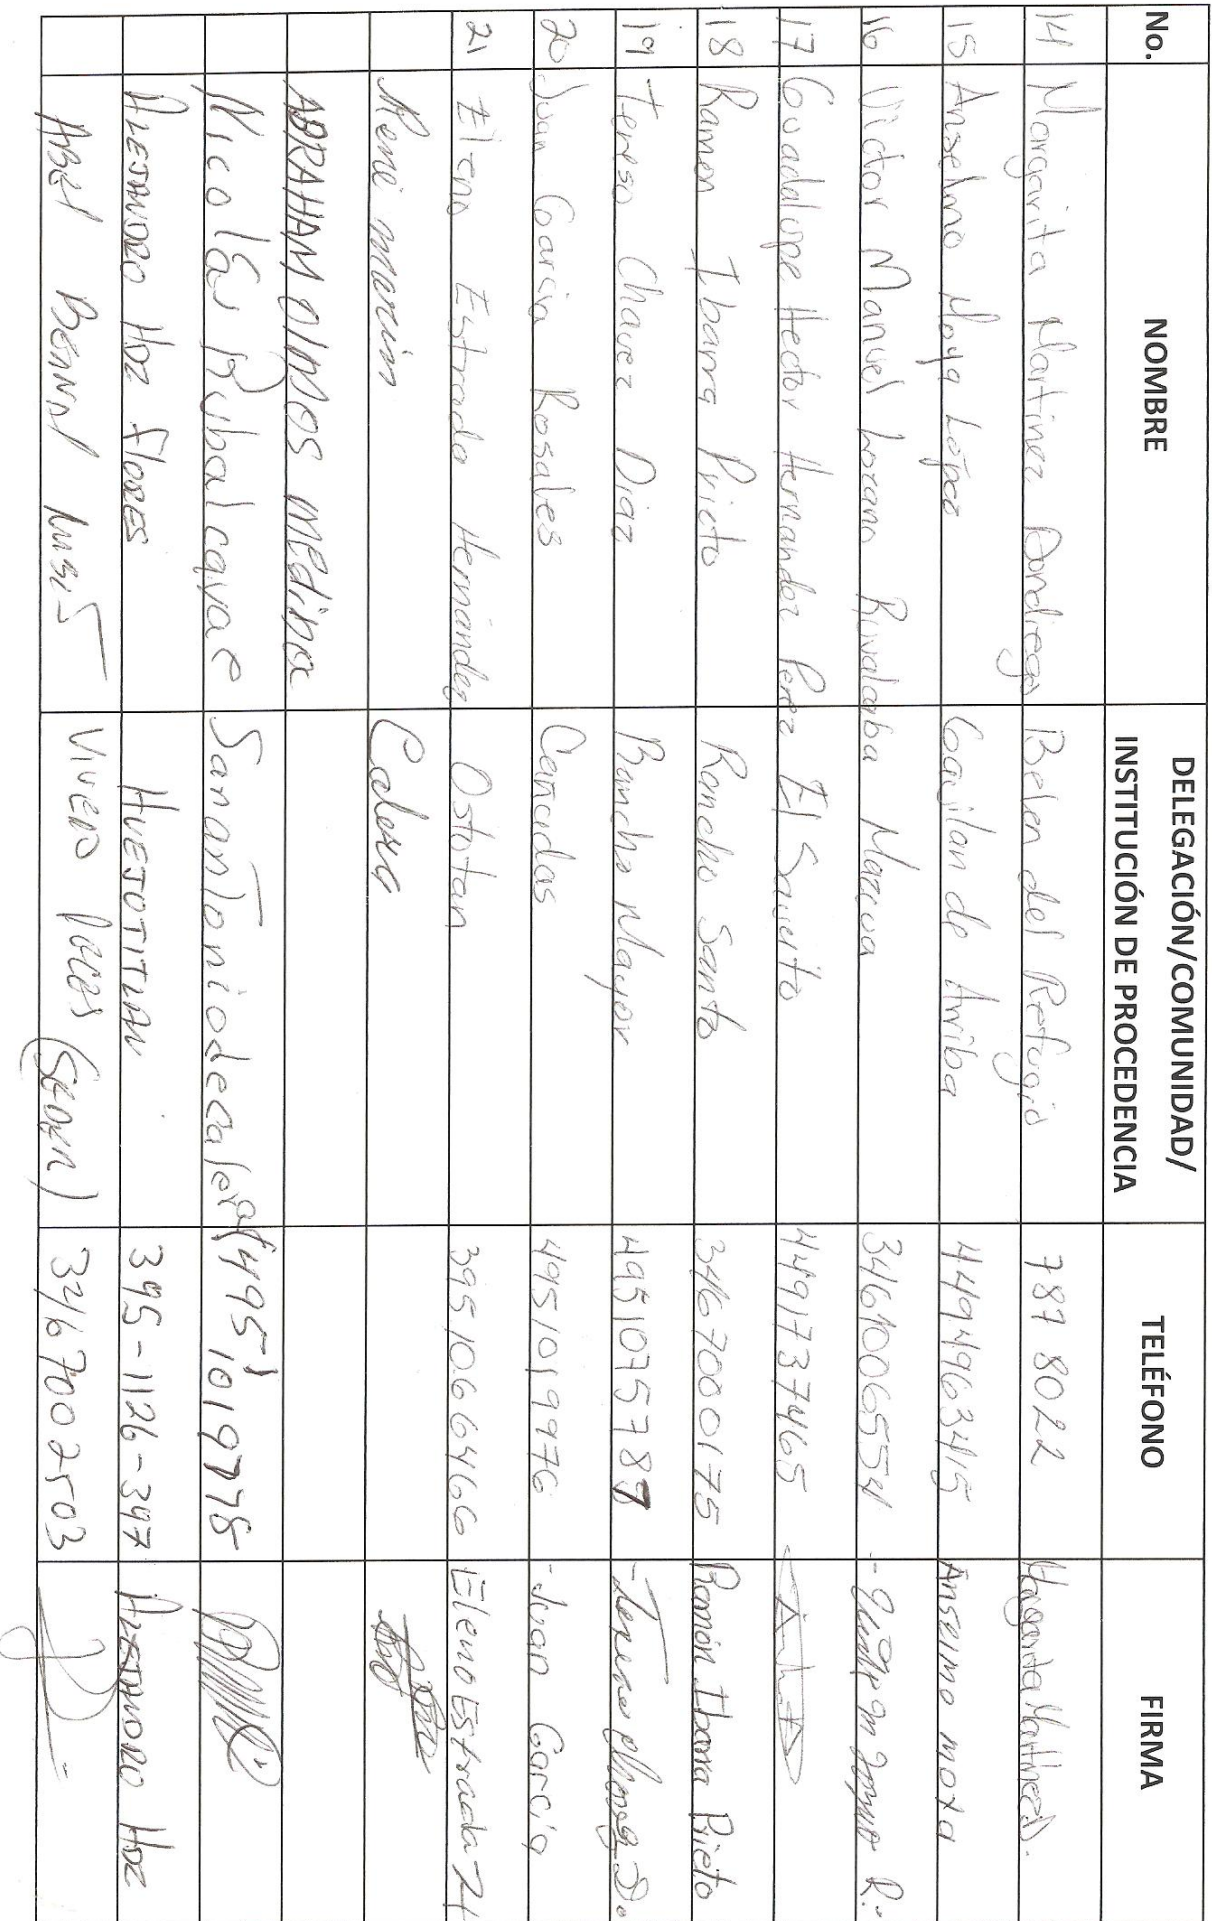 No. NOMBRE DELEGACIÓN/COMUNIDAD/ INSTITUCIÓN DE PROCEDENCIA TELÉFONO FIRMA
14 Margarita Martinez Dondiego Belen del Refugio 787 8022 Margarita Martinez D.
15 Anselmo Moya López Coajilan de Arriba 4494963415 Anselmo moya
16 Victor Manuel Lozano Ruvalcaba Mazcua 3461006554
17 Guadalupe Hector Hernandez Perez El Saucito 4491737465
18 Ramon Ibarra Prieto Rancho Santo 3467000175 Ramón Ibarra Prieto
19 Tereso Chavez Diaz Rancho Mayor
20 Juan Garcia Rosales 4951019976 -Juan Garcia
21 Eleno Estrada Hernández Ostotan 3951066466 Eleno Estrada H
Rene marin Calera
ABRAHAM OlMDOS MEdina
Nicolás Rubalcava e Sanantoniodecalera (495) 1019778
ALEJANDRO HDZ FlORES HUEJOTITLAN 395-1126-397 ALEJANDRO HDZ
ABEl BERNAl Vivero (SEDER) 3467007503